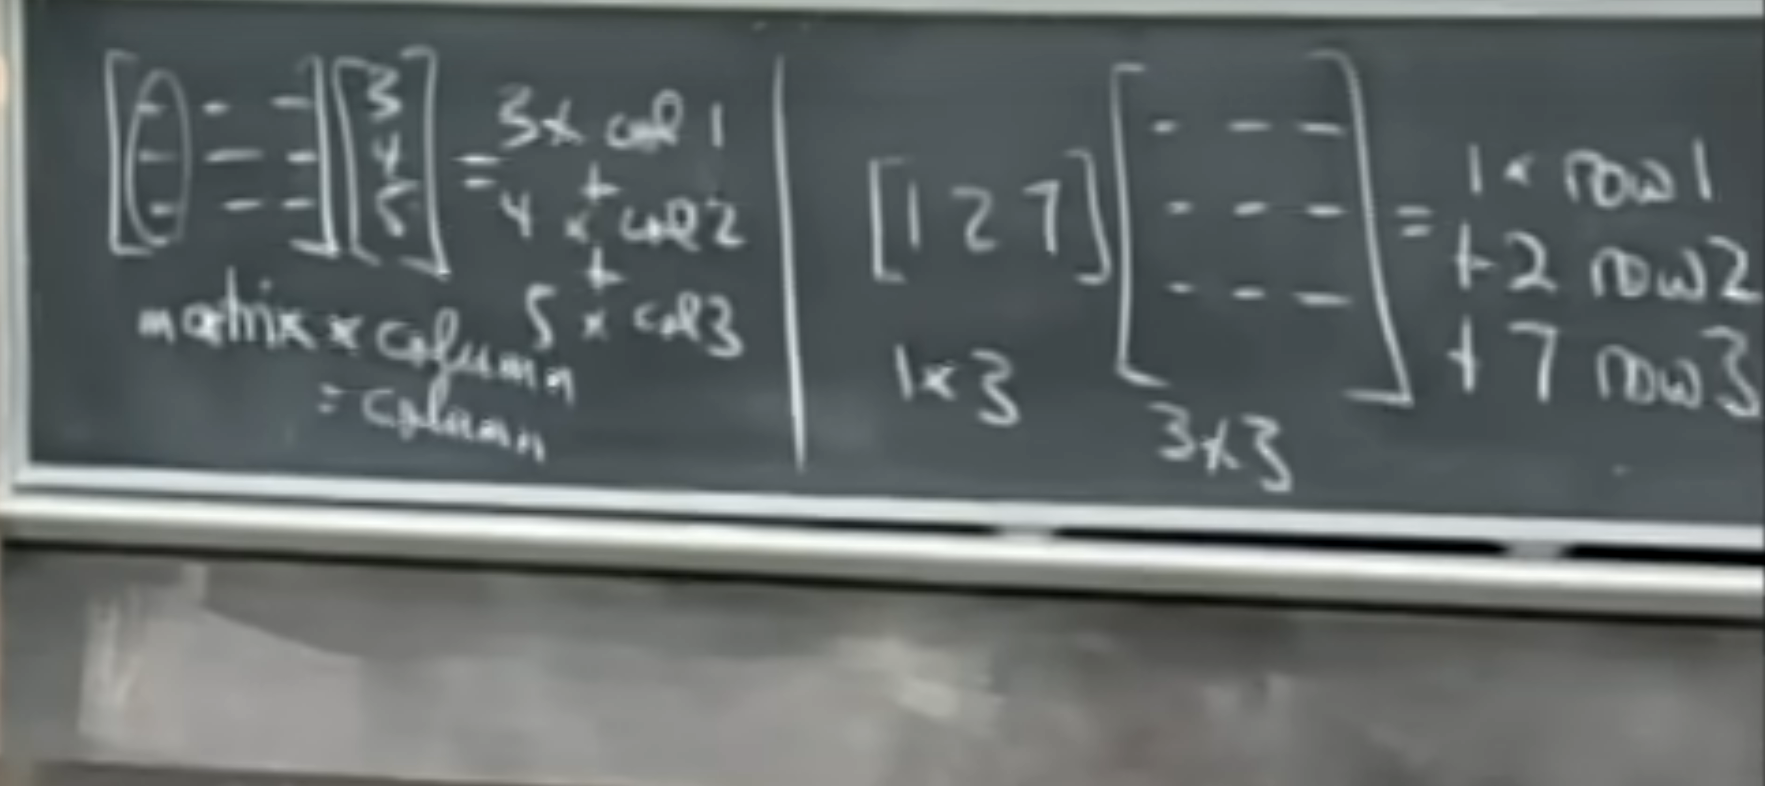 [- - -] [3] = 3 x col 1
[- - -] [4] +
[- - -] [5] 4 x col 2
+
5 x col 3
matrix x column
= column
[1 2 7] [- - -] = 1 x row 1
[- - -] + 2 row 2
[- - -] + 7 row 3
1x3
3x3